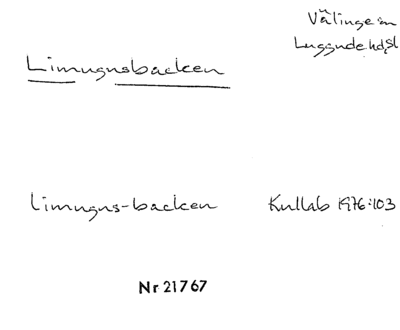 Välinge sn
Luggude hd, Sk
Limugnsbacken
limugns-backen Kullab 1976:103
Nr 21767